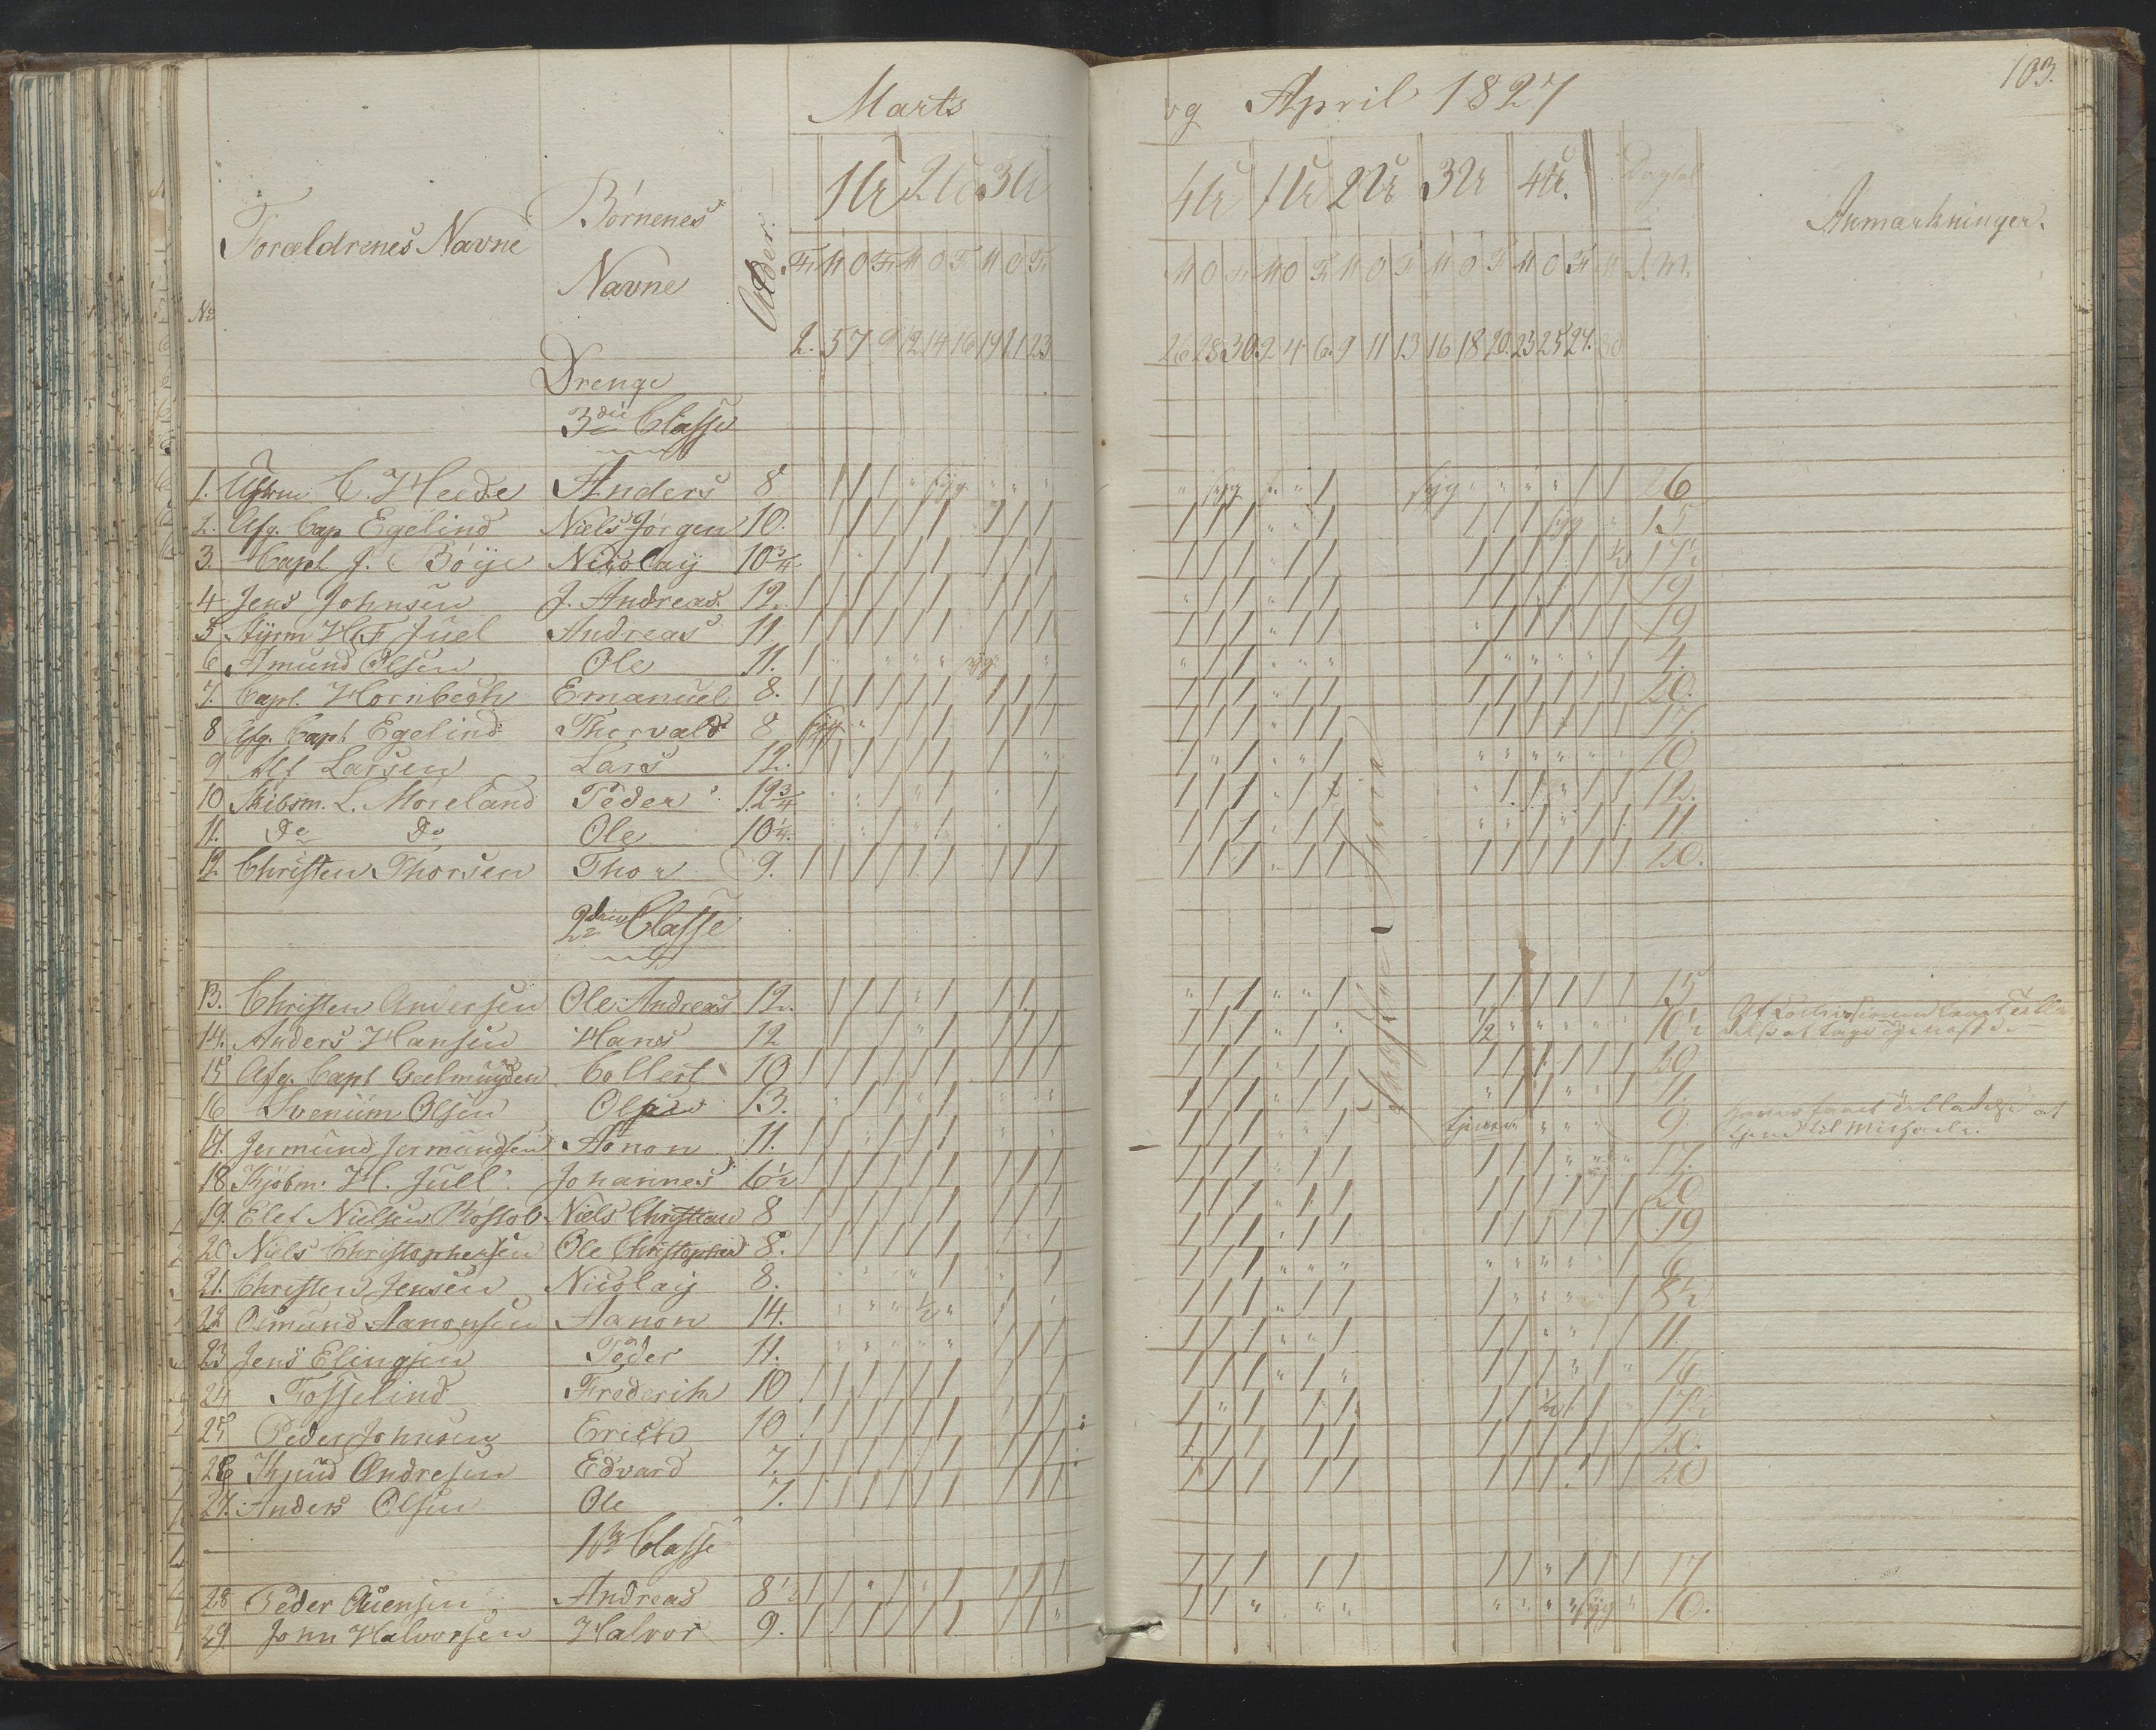 Marts
og April 1827
103.
No
Forældrenes Navne
Børnenes Navne
Alder.
1 U 2 U 3 U
4 U 1 U 2 U 3 U 4 U.
Dagtal
Anmærkninger.
Fr. M O Fr M O F M O Fr
M O Fr M O Fr M O F M O F M O Fr M
2. 5 7 9 12 14 16 19 21 23
26 28 30 2 4 6 9 11 13 16 18 20 23 25 27. 30
Drenge
3die Classe
1. C. Heede Anders 8 syg syg syg 6
2. Afg. Cap Egelind Niels Jørgen 10. syg 15
3. Capt. J. Bøye Nicolay 10 3/4 1/2 17 1/2
4 Jens Johnsen J. Andreas 12. 19
5 Styrm H. F. Juel Andreas 11 19
6 Amund Olsen Ole 11. syg 4.
7. Capt. Hornbech Emanuel 8. 20.
8 Afg. Capt Egelind Thorvald 8 syg 17.
9 Alf Larsen Lars 12. 10
10 Skibsm. L. Moreland Peder 12 3/4 12.
11. Do Do Ole 10 1/4. 11
12 Christen Thorsen Thor 9. 20.
2den Classe
13. Christen Andersen Ole Andreas 12. 15
14. Anders Hansen Hans 12 1/2 10 1/2
15 Afg. Capt Geelmuyden Collert 10 20
16 Svenum Olsen Olsen 13. 11.
17. Jermund Jermundsen Aanon 11. 9
18 Kjøbm. H. Juell Johannes 6 1/2 17.
19. Elef Nielsen Niels Christian 8 20
20 Niels Christophersen Ole Christopher 8. 19
21. Christen Jensen Nicolay 8. 6
22 Osmund Aanonsen Aanon 14. 1/2 8 1/2
23 Jens Elingsen Peder 11. 11.
24 Fosselind Frederik 10 16
25 Peder Johnsen Erich 10 1/2 17 1/2
26 Knud Andresen Edvard 7. 20.
27. Anders Olsen Ole 7. 20
1ste Classe
28 Peder Andreas 8 1/2 17
29 John Halvorsen Halvor 9. syg 10.